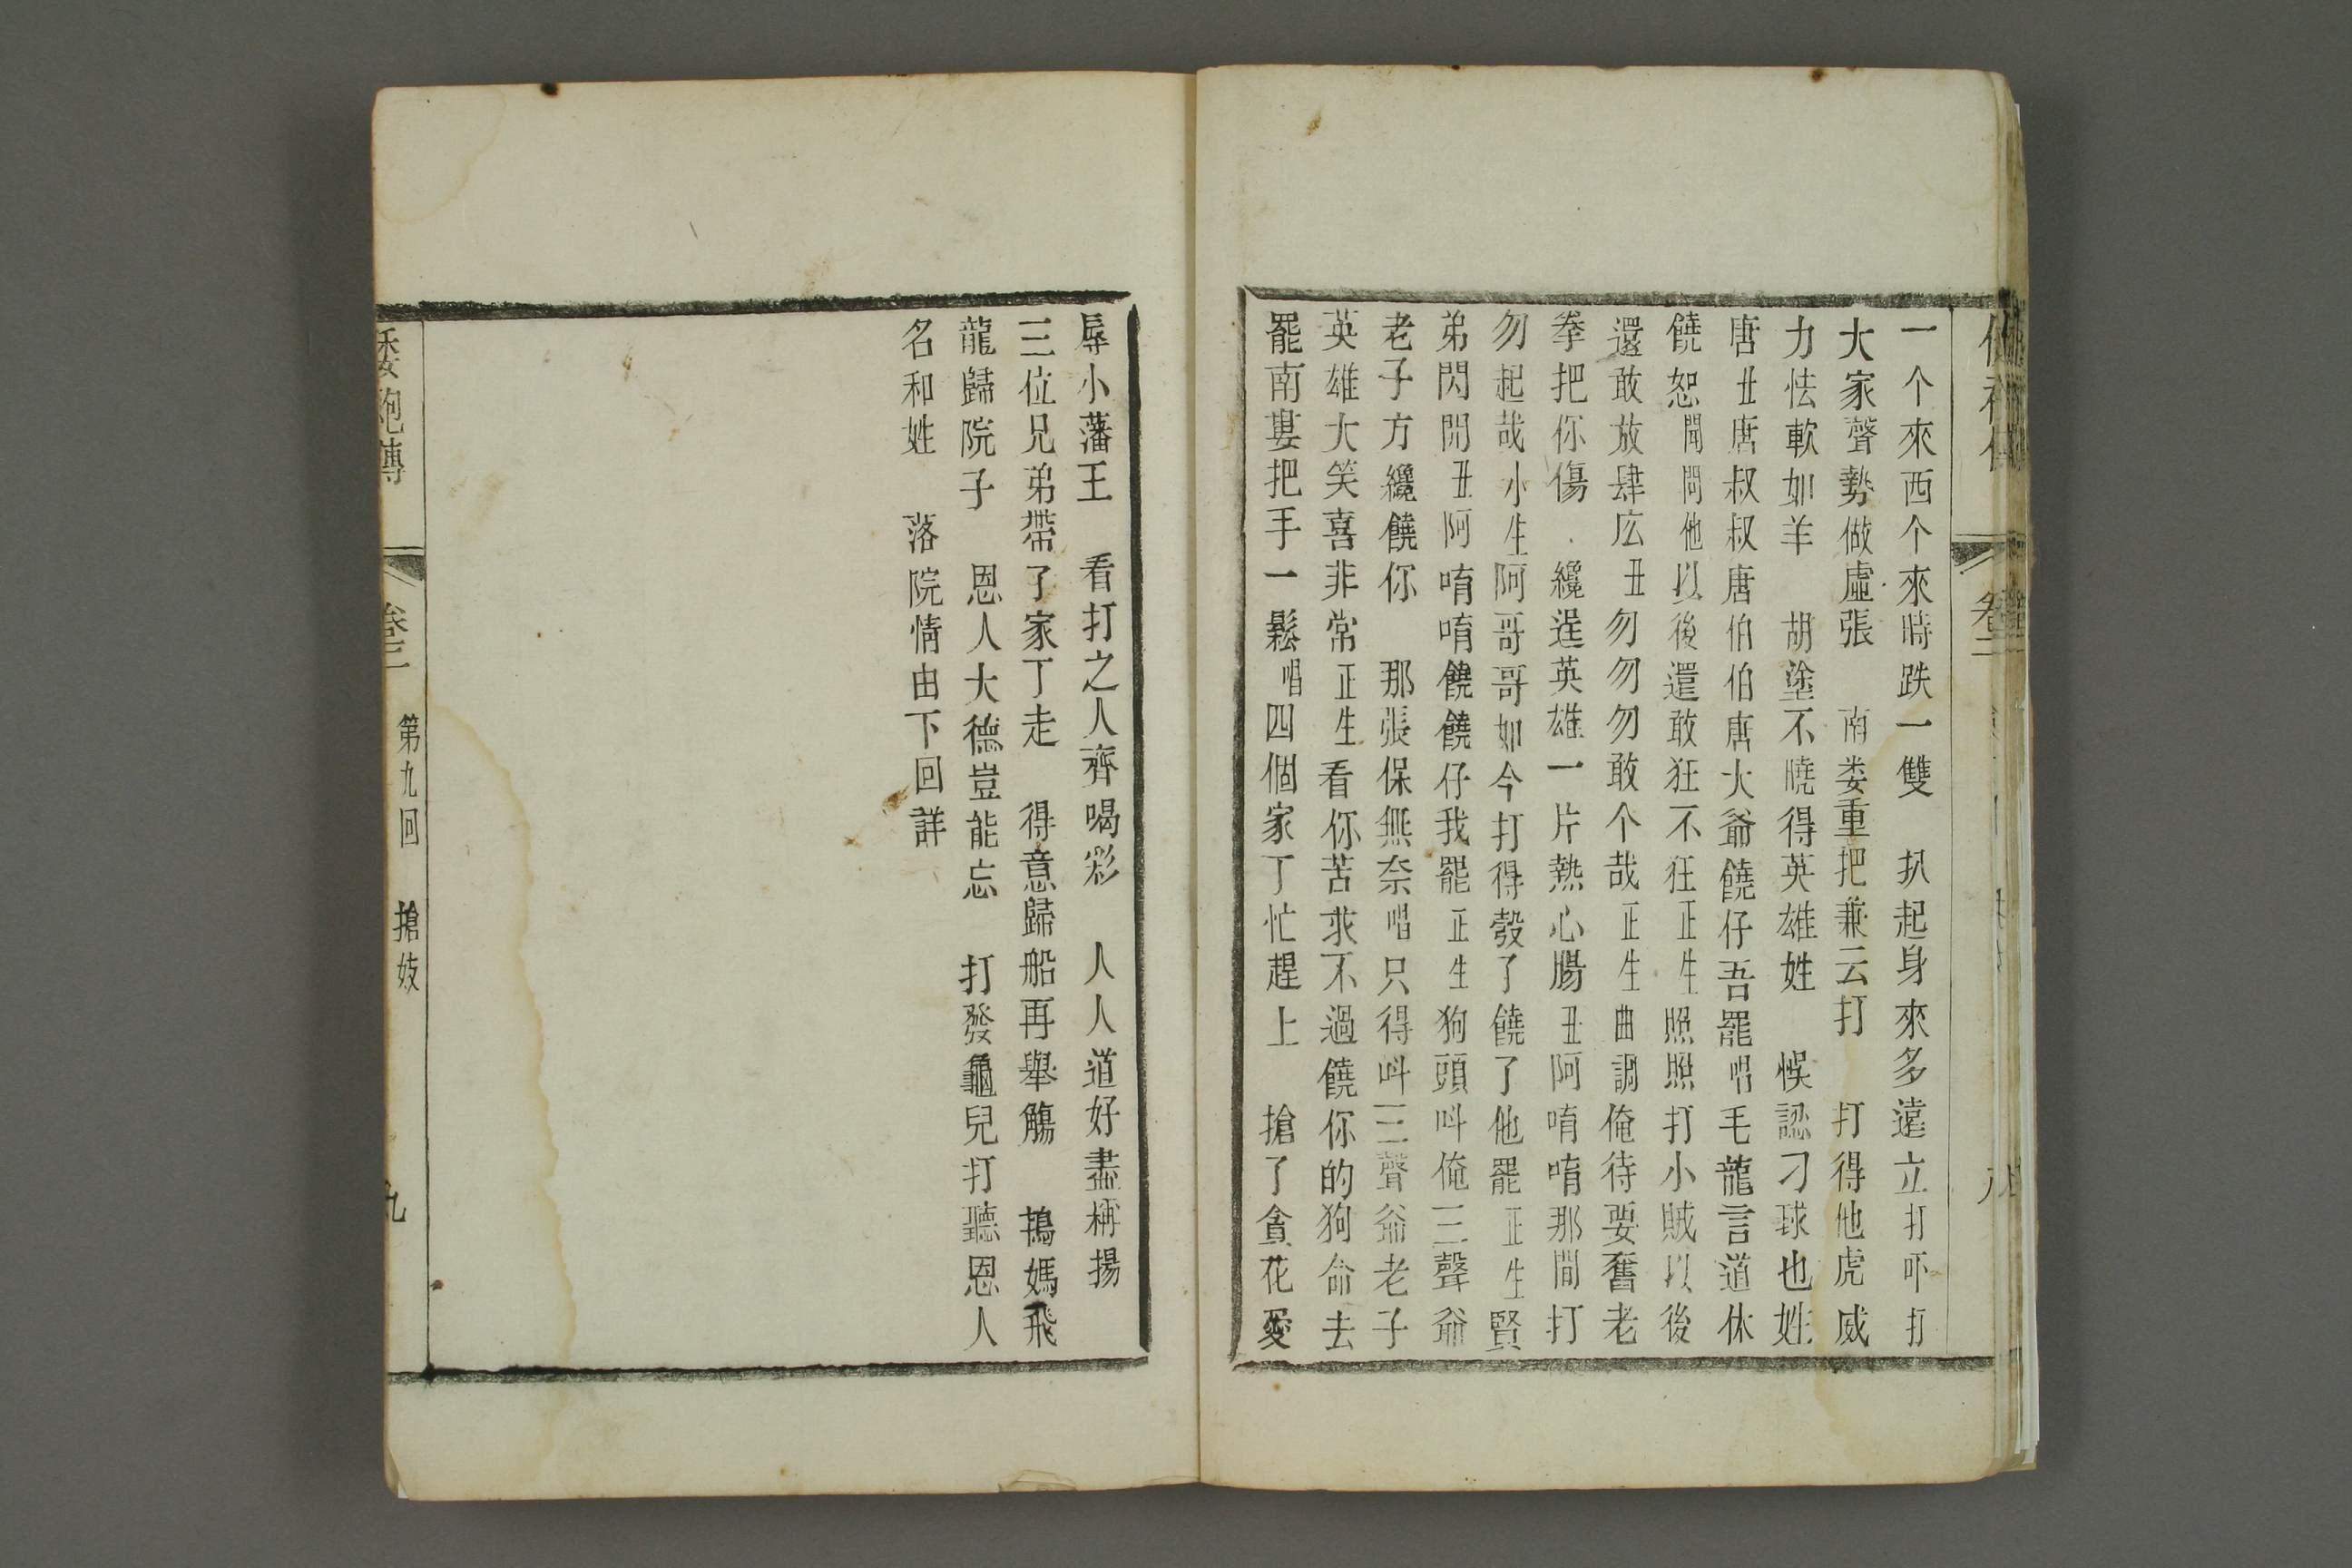 一个來西个來時跌一雙　扒起身來多遠立打吓打
大家聲勢做虛張　南娄重把兼云打　打得他虎威
力怯軟如羊　胡塗不曉得英雄姓　悮認刁球也姓
唐丑唐叔叔唐伯伯唐大爺饒仔吾罷唱毛龍言道休
饒恕聞問他以後還敢狂不狂正生照照打小賊以後
還敢放肆広丑勿勿勿敢个哉正生曲調俺待要奮老
拳把你傷　纔逞英雄一片熱心腸丑阿唷唷那間打
勿起哉小生阿哥哥如今打得彀了饒了他罷正生賢
弟閃開丑阿唷唷饒饒仔我罷正生狗頭呌俺三聲爺
老子方纔饒你　那張保無奈唱只得呌三聲爺老子
英雄大笑喜非常正生看你苦求不過饒你的狗命去
罷南婁把手一鬆唱四個家丁忙趕上　搶了貪花愛
辱小藩王　看打之人齊喝彩　人人道好盡稱揚
三位兄弟帶了家丁走　得意歸船再舉觴　鴇媽飛
龍歸院子　恩人大德豈能忘　打發龜兒打聽恩人
名和姓　落院情由下回詳
倭袍傳　卷二　第九回　搶妓　九